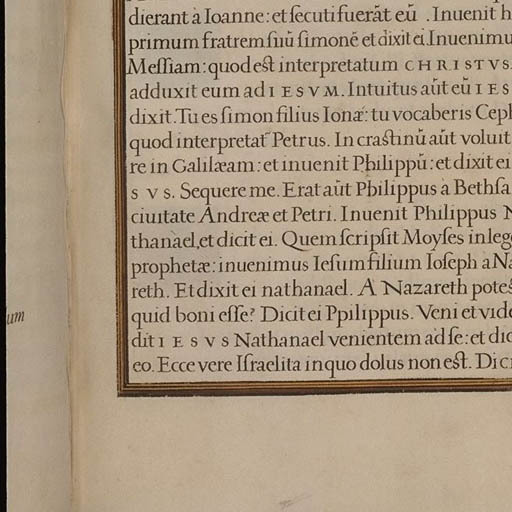 dierant à Ioanne: et secuti fuerāt eū . Inuenit h
primum fratrem suū simonē et dixit ei. Inuenimu
Messiam: quod est interpretatum CHRISTVS.
adduxit eum ad IESVM. Intuitus aūt eū IES
dixit. Tu es simon filius Ionæ: tu vocaberis Ceph
quod interpretat' Petrus. In crastinū aūt voluit
re in Galilæam: et inuenit Philippū: et dixit ei
SVS. Sequere me. Erat aūt Philippus à Bethsa
ciuitate Andreæ et Petri. Inuenit Philippus N
thanael, et dicit ei. Quem scripsit Moyses in lege
prophetæ: inuenimus Iesum filium Ioseph a Na
reth. Et dixit ei nathanael. A' Nazareth potes
quid boni esse? Dicit ei Ppilippus. Veni et vide
dit IESVS Nathanael venientem ad se: et dic
eo. Ecce vere Israelita in quo dolus non est. Dici